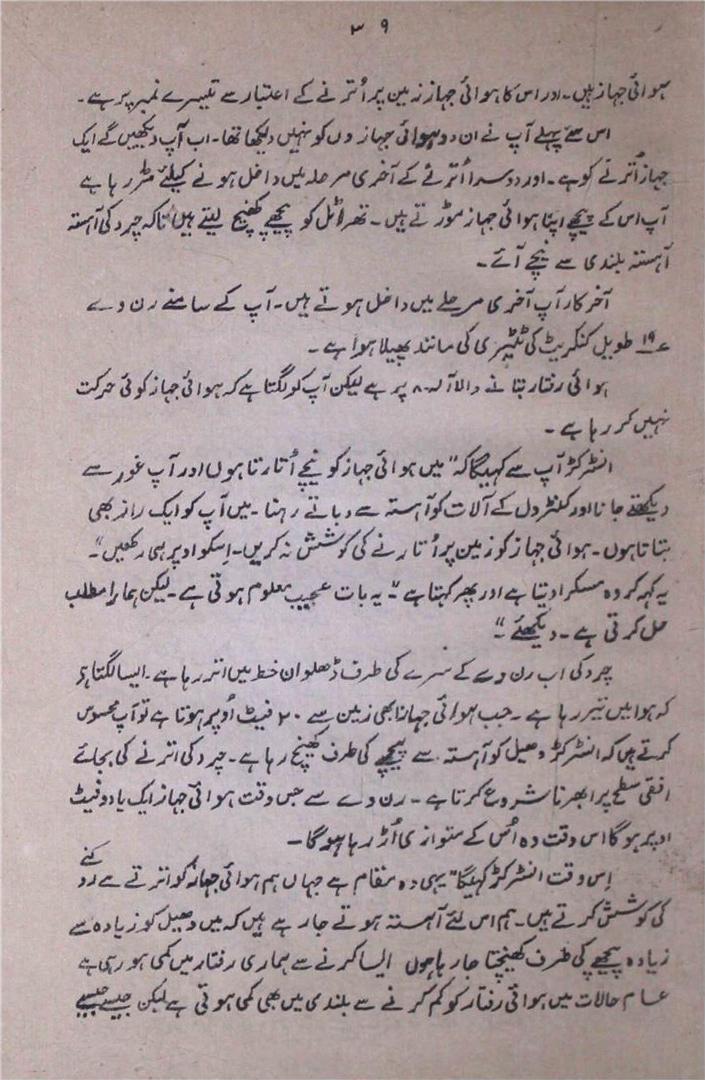 ۳۹
ہوائی جہاز ہیں۔ اور اس کا ہوائی جہاز زمین پر اُترنے کے اعتبار سے تیسرے نمبر پر ہے۔
اس سے پہلے آپ نے ان دو ہوائی جہازوں کو نہیں دیکھا تھا۔ اب آپ دیکھیں گے ایک
جہاز اُترنے کو ہے۔ اور دوسرا اُترنے کے آخری مرحلہ میں داخل ہونے کیلئے مڑ رہا ہے
آپ اس کے پیچھے اپنا ہوائی جہاز موڑتے ہیں۔ تھراٹل کو پیچھے کھینچ لیتے ہیں تاکہ چروکی آہستہ
آہستہ بلندی سے نیچے آئے۔
آخر کار آپ آخری مرحلے میں داخل ہوتے ہیں۔ آپ کے سامنے رن وے
؏۱۹ طویل کنکریٹ کی پٹڑی کی مانند پھیلا ہوا ہے۔
ہوائی رفتار بتانے والا آلہ ۸۰ پر ہے لیکن آپ کو لگتا ہے کہ ہوائی جہاز کوئی حرکت
نہیں کر رہا ہے۔
انسٹرکٹر آپ سے کہیگا کہ "میں ہوائی جہاز کو نیچے اُتارتا ہوں اور آپ غور سے
دیکھتے جانا اور کنٹرول کے آلات کو آہستہ سے دباتے رہنا۔ میں آپ کو ایک راز بھی
بتاتا ہوں۔ ہوائی جہاز کو زمین پر اُتارنے کی کوشش نہ کریں۔ اِسکو اوپر ہی رکھیں"۔
یہ کہہ کر وہ مسکرا دیتا ہے اور پھر کہتا ہے "یہ بات عجیب معلوم ہوتی ہے۔ لیکن ہمارا مطلب
حل کرتی ہے۔ دیکھئے"
چروکی اب رن وے کے سرے کی طرف ڈھلوان خط میں اتر رہا ہے۔ ایسا لگتا ہے
کہ ہوا میں تیر رہا ہے۔ جب ہوائی جہاز ابھی زمین سے ۲۰ فیٹ اُوپر ہوتا ہے تو آپ محسوس
کرتے ہیں کہ انسٹرکٹر وھیل کو آہستہ سے پیچھے کی طرف کھینچ رہا ہے۔ چروکی اترنے کی بجائے
افقی سطح پر ابھرنا شروع کرتا ہے۔ رن وے سے جس وقت ہوائی جہاز ایک یا دو فیٹ
اوپر ہوگا اس وقت وہ اُس کے متوازی اُڑ رہا ہوگا۔
اِس وقت انسٹرکٹر کہیگا "یہی وہ مقام ہے جہاں ہم ہوائی جہاز کو اترنے سے روکنے
کی کوشش کرتے ہیں۔ ہم اس لئے آہستہ ہوتے جا رہے ہیں کہ میں وھیل کو زیادہ سے
زیادہ پیچھے کی طرف کھینچتا جا رہا ہوں ایسا کرنے سے ہماری رفتار میں کمی ہو رہی ہے
عام حالات میں ہوائی رفتار کو کم کرنے سے بلندی میں بھی کمی ہوتی ہے لیکن جیسے جیسے